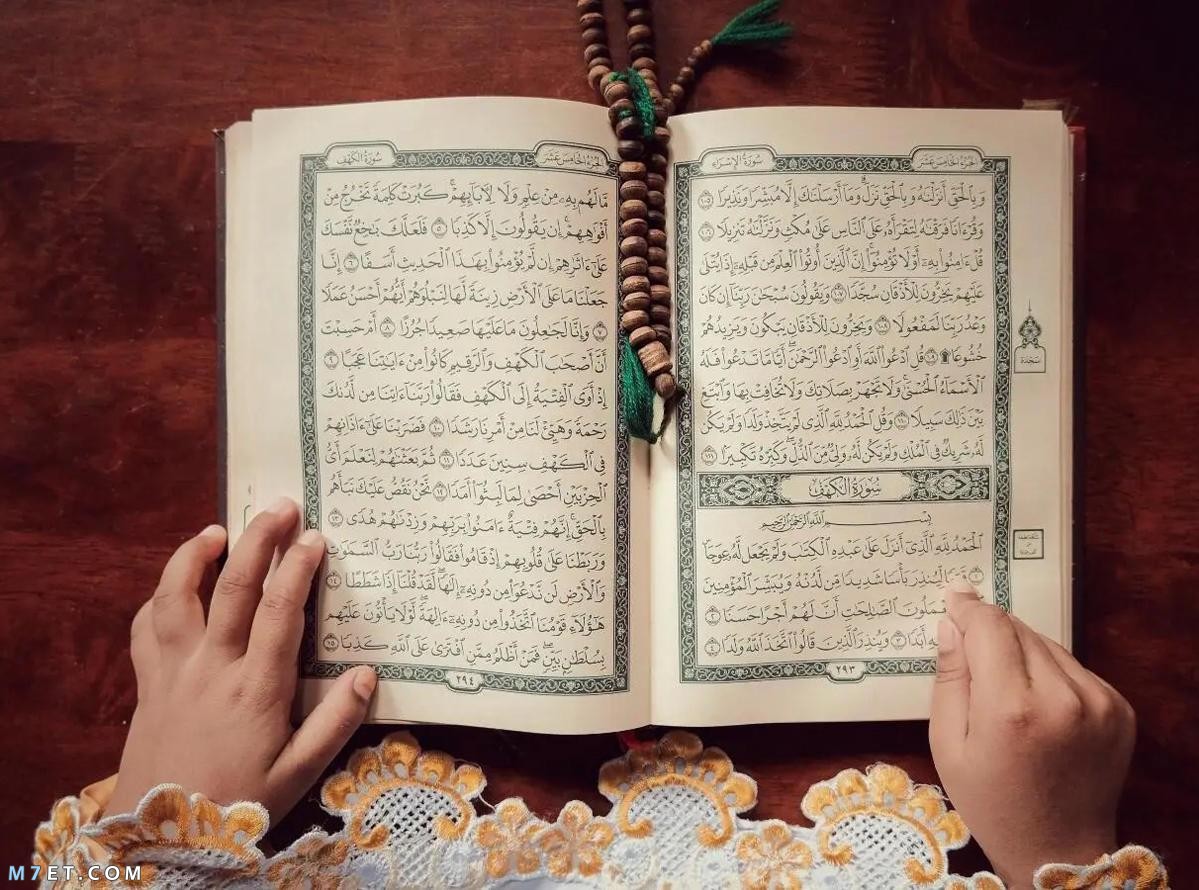 الجزء الخامس عشر
سورة الإسراء
وَبِٱلْحَقِّ أَنزَلْنَٰهُ وَبِٱلْحَقِّ نَزَلَ ۗ وَمَآ أَرْسَلْنَٰكَ إِلَّا مُبَشِّرًا وَنَذِيرًا ١٠٥
وَقُرْءَانًا فَرَقْنَٰهُ لِتَقْرَأَهُۥ عَلَى ٱلنَّاسِ عَلَىٰ مُكْثٍ وَنَزَّلْنَٰهُ تَنزِيلًا ١٠٦
قُلْ ءَامِنُوا۟ بِهِۦٓ أَوْ لَا تُؤْمِنُوٓا۟ ۚ إِنَّ ٱلَّذِينَ أُوتُوا۟ ٱلْعِلْمَ مِن قَبْلِهِۦٓ إِذَا يُتْلَىٰ
عَلَيْهِمْ يَخِرُّونَ لِلْأَذْقَانِ سُجَّدًا ١٠٧ وَيَقُولُونَ سُبْحَٰنَ رَبِّنَآ إِن كَانَ
وَعْدُ رَبِّنَا لَمَفْعُولًا ١٠٨ وَيَخِرُّونَ لِلْأَذْقَانِ يَبْكُونَ وَيَزِيدُهُمْ
خُشُوعًا ۩ ١٠٩ قُلِ ٱدْعُوا۟ ٱللَّهَ أَوِ ٱدْعُوا۟ ٱلرَّحْمَٰنَ ۖ أَيًّا مَّا تَدْعُوا۟ فَلَهُ
ٱلْأَسْمَآءُ ٱلْحُسْنَىٰ ۚ وَلَا تَجْهَرْ بِصَلَاتِكَ وَلَا تُخَافِتْ بِهَا وَٱبْتَغِ
بَيْنَ ذَٰلِكَ سَبِيلًا ١١٠ وَقُلِ ٱلْحَمْدُ لِلَّهِ ٱلَّذِى لَمْ يَتَّخِذْ وَلَدًا وَلَمْ يَكُن
لَّهُۥ شَرِيكٌ فِى ٱلْمُلْكِ وَلَمْ يَكُن لَّهُۥ وَلِىٌّ مِّنَ ٱلذُّلِّ ۖ وَكَبِّرْهُ تَكْبِيرًا ١١١
سُورَةُ الكَهْفِ
بِسْمِ ٱللَّهِ ٱلرَّحْمَٰنِ ٱلرَّحِيمِ
ٱلْحَمْدُ لِلَّهِ ٱلَّذِىٓ أَنزَلَ عَلَىٰ عَبْدِهِ ٱلْكِتَٰبَ وَلَمْ يَجْعَل لَّهُۥ عِوَجَا
١ لِّيُنذِرَ بَأْسًا شَدِيدًا مِّن لَّدُنْهُ وَيُبَشِّرَ ٱلْمُؤْمِنِينَ
يَعْمَلُونَ ٱلصَّٰلِحَٰتِ أَنَّ لَهُمْ أَجْرًا حَسَنًا ٢
فِيهِ أَبَدًا ٣ وَيُنذِرَ ٱلَّذِينَ قَالُوا۟ ٱتَّخَذَ ٱللَّهُ وَلَدًا ٤
٢٩٣
سجدة
الجزء الخامس عشر
سورة الكهف
مَّا لَهُم بِهِۦ مِنْ عِلْمٍ وَلَا لِءَابَآئِهِمْ ۚ كَبُرَتْ كَلِمَةً تَخْرُجُ مِنْ
أَفْوَٰهِهِمْ ۚ إِن يَقُولُونَ إِلَّا كَذِبًا ٥ فَلَعَلَّكَ بَٰخِعٌ نَّفْسَكَ
عَلَىٰٓ ءَاثَٰرِهِمْ إِن لَّمْ يُؤْمِنُوا۟ بِهَٰذَا ٱلْحَدِيثِ أَسَفًا ٦ إِنَّا
جَعَلْنَا مَا عَلَى ٱلْأَرْضِ زِينَةً لَّهَا لِنَبْلُوَهُمْ أَيُّهُمْ أَحْسَنُ عَمَلًا
٧ وَإِنَّا لَجَٰعِلُونَ مَا عَلَيْهَا صَعِيدًا جُرُزًا ٨ أَمْ حَسِبْتَ
أَنَّ أَصْحَٰبَ ٱلْكَهْفِ وَٱلرَّقِيمِ كَانُوا۟ مِنْ ءَايَٰتِنَا عَجَبًا ٩
إِذْ أَوَى ٱلْفِتْيَةُ إِلَى ٱلْكَهْفِ فَقَالُوا۟ رَبَّنَآ ءَاتِنَا مِن لَّدُنكَ
رَحْمَةً وَهَيِّئْ لَنَا مِنْ أَمْرِنَا رَشَدًا ١٠ فَضَرَبْنَا عَلَىٰٓ ءَاذَانِهِمْ
فِى ٱلْكَهْفِ سِنِينَ عَدَدًا ١١ ثُمَّ بَعَثْنَٰهُمْ لِنَعْلَمَ أَىُّ
ٱلْحِزْبَيْنِ أَحْصَىٰ لِمَا لَبِثُوٓا۟ أَمَدًا ١٢ نَّحْنُ نَقُصُّ عَلَيْكَ نَبَأَهُم
بِٱلْحَقِّ ۚ إِنَّهُمْ فِتْيَةٌ ءَامَنُوا۟ بِرَبِّهِمْ وَزِدْنَٰهُمْ هُدًى ١٣
وَرَبَطْنَا عَلَىٰ قُلُوبِهِمْ إِذْ قَامُوا۟ فَقَالُوا۟ رَبُّنَا رَبُّ ٱلسَّمَٰوَٰتِ
وَٱلْأَرْضِ لَن نَّدْعُوَا۟ مِن دُونِهِۦٓ إِلَٰهًا ۖ لَّقَدْ قُلْنَآ إِذًا شَطَطًا ١٤
هَٰٓؤُلَآءِ قَوْمُنَا ٱتَّخَذُوا۟ مِن دُونِهِۦٓ ءَالِهَةً ۖ لَّوْلَا يَأْتُونَ عَلَيْهِم
بِسُلْطَٰنٍۭ بَيِّنٍ ۖ فَمَنْ أَظْلَمُ مِمَّنِ ٱفْتَرَىٰ عَلَى ٱللَّهِ كَذِبًا ١٥
٢٩٤
M7ET.COM